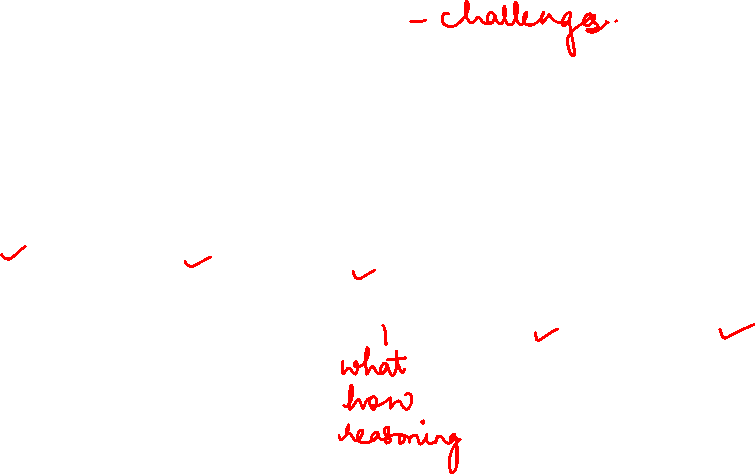 - challenges.
✓ ✓ ✓
✓ ✓
what
how
reasoning